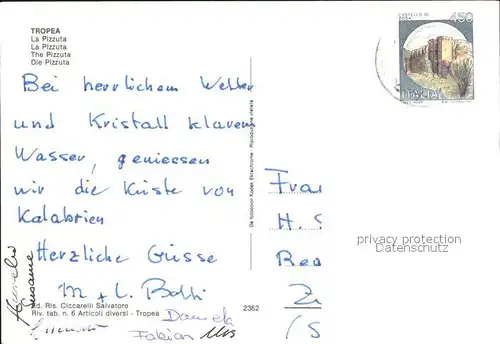 TROPEA
La Pizzuta
La Pizzuta
The Pizzuta
Die Pizzuta
CASTELLO DI
450
ITALIA
Bei herrlichem Wetter
und Kristall klarem
Wasser, geniessen
wir die Küste von
Kalabrien
Herzliche Grüsse
M + L.
Susanne
Daniela
Fabian
Frau
H. S
Rea
privacy protection
Datenschutz
Ed. Ris. Ciccarelli Salvatore
Riv. tab. n. 6 Articoli diversi - Tropea
2362
Riproduzione vietata